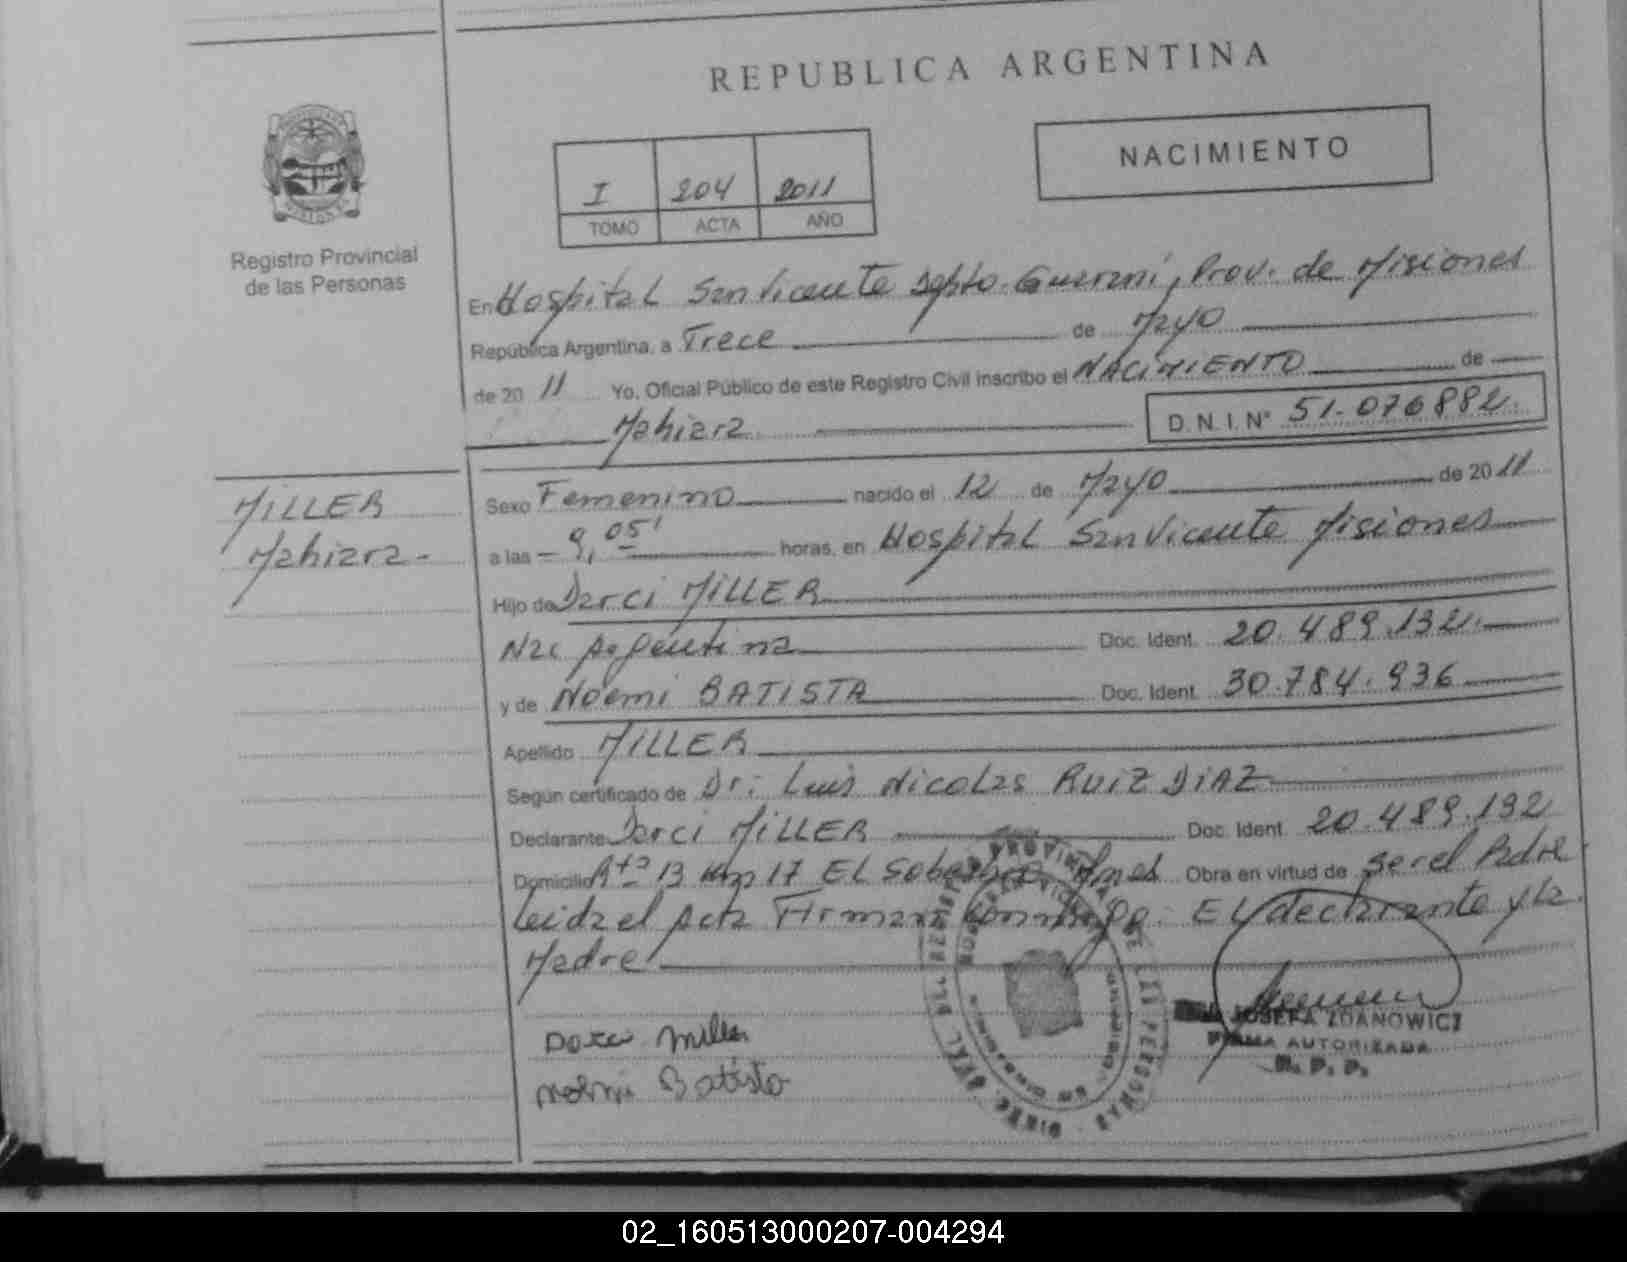 REPUBLICA ARGENTINA
NACIMIENTO
I 204 2011
TOMO ACTA AÑO
Registro Provincial
de las Personas
En Hospital San Vicente Dpto. Guaraní, Prov. de Misiones
República Argentina, a Trece de Mayo
de 2011 Yo. Oficial Público de este Registro Civil inscribo el NACIMIENTO de
Mahiara D.N.I.Nº 51.076882.
MILLER
Mahiara-
Sexo Femenino nacido el 12 de Mayo de 2011
a las - 9,05' horas, en Hospital San Vicente Misiones
Hijo de Darci MILLER
Nac Argentina Doc. Ident. 20.489.132.
y de Noemi BATISTA Doc. Ident. 30.784.936
Apellido MILLER
Según certificado de Dr: Luis Nicolas RUIZ DIAZ
Declarante Darci MILLER Doc. Ident. 20.489.132
Domicilio Rta 13 Km 17 EL Soberbio Mnes Obra en virtud de ser el Padre
Leida el Acta Firman conmigo: EL declarante y la
Madre
Miller
Batista
JOSEFA ZDANOWICZ
FIRMA AUTORIZADA
R. P. P.
02_160513000207-004294